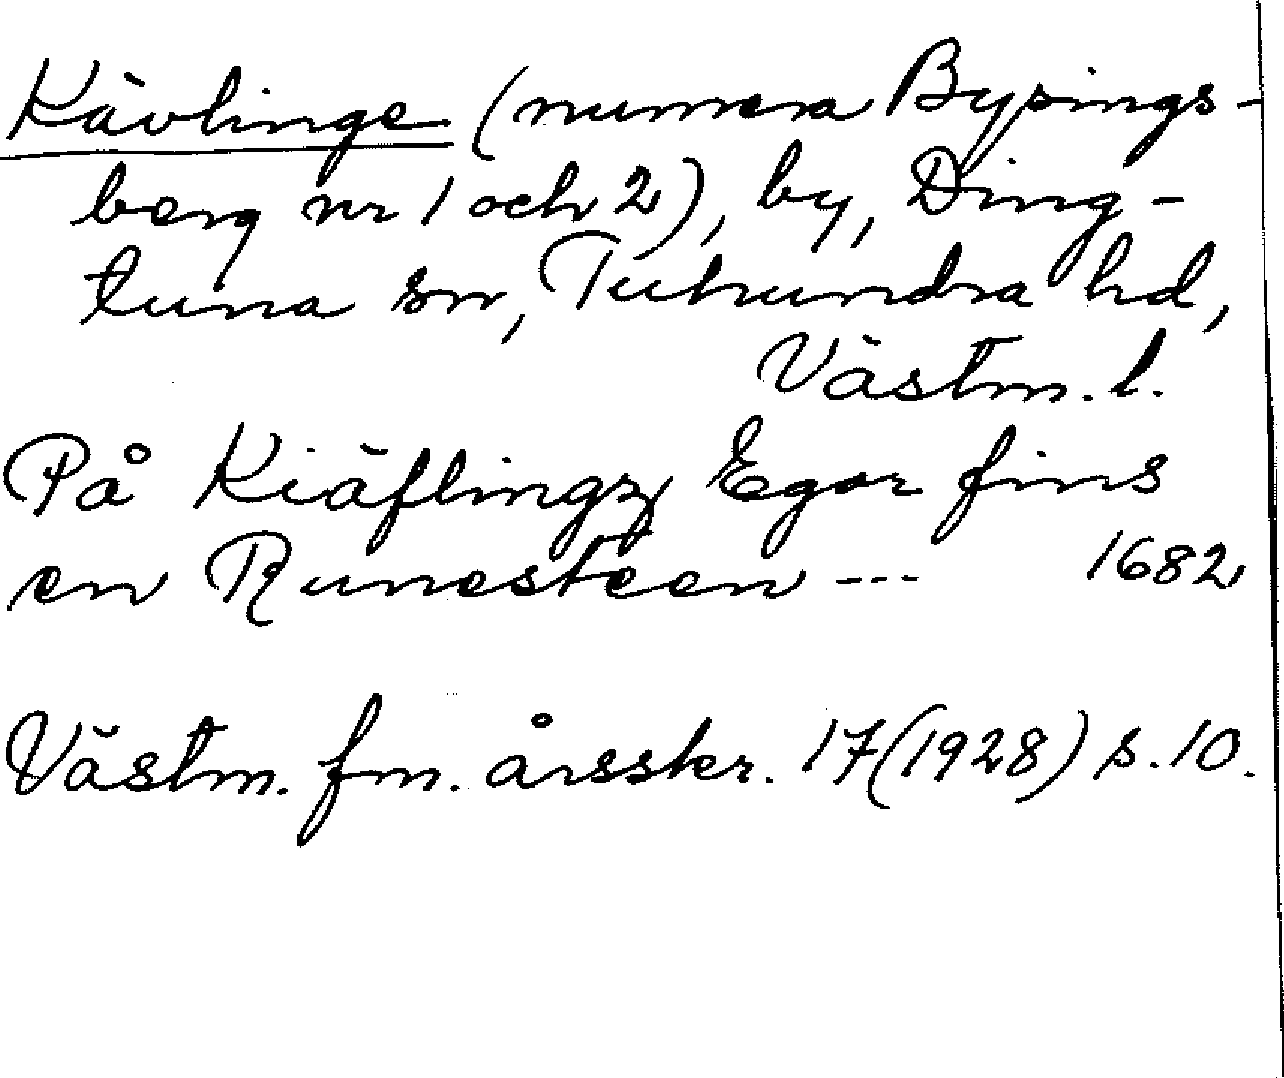 Kävlinge (numera Bysings-
berg nr 1 och 2), by, Ding-
tuna sn, Tuhundra hd,
Västm. l.
På Kiäflingz Egor fins
en Runesteen --- 1682
Västm. fm. årsskr. 17 (1928) s. 10.